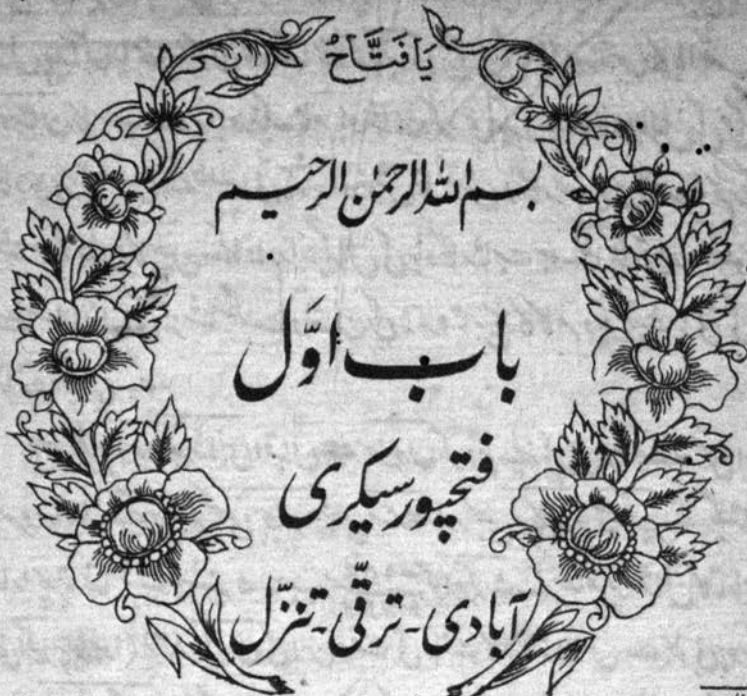 يَا فَتَّاحُ
بسم اللہ الرحمٰن الرحیم
باب اوَّل
فتحپور سیکری
آبادی ۔ ترقّی ۔ تنزّل